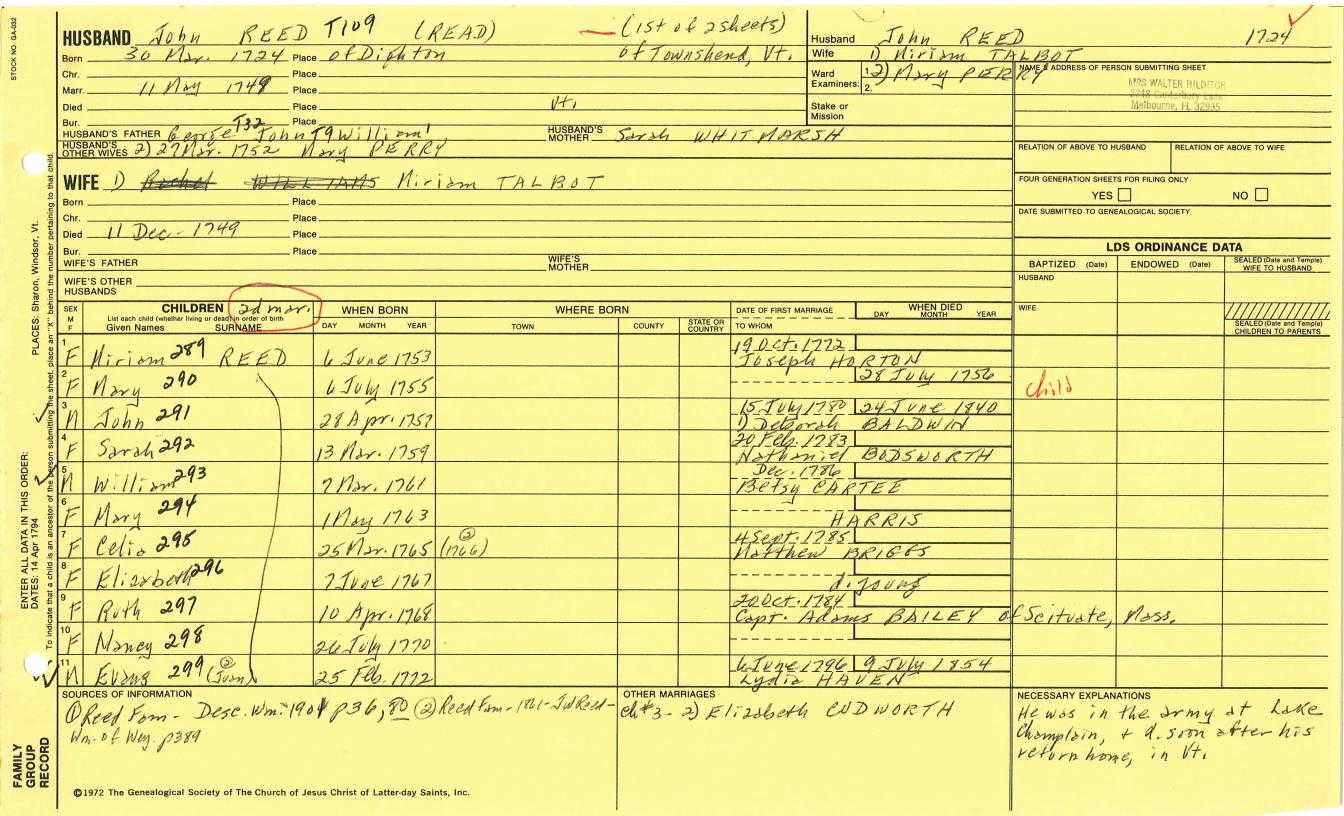 STOCK NO. GA-032
HUSBAND John REED T109 (READ) (1st of 2 sheets)
Born 30 Mar. 1724 Place of Dighton of Townshend, Vt.
Chr. Place
Marr. 11 May 1749 Place
Died Place Vt.
Bur. Place
HUSBAND'S FATHER George T32 John T9 William1, HUSBAND'S MOTHER Sarah WHITMARSH
HUSBAND'S OTHER WIVES 2) 27 Mar. 1752 Mary PERRY
Husband John REED 1724
Wife 1) Miriam TALBOT
2) Mary PERRY
Ward Examiners: 1. 2.
Stake or Mission
NAME & ADDRESS OF PERSON SUBMITTING SHEET
MRS WALTER HILDITCH
Melbourne, FL 32935
RELATION OF ABOVE TO HUSBAND RELATION OF ABOVE TO WIFE
FOUR GENERATION SHEETS FOR FILING ONLY
YES NO
DATE SUBMITTED TO GENEALOGICAL SOCIETY
WIFE 1) Rachel WILLIAMS Miriam TALBOT
Born Place
Chr. Place
Died 11 Dec- 1749 Place
Bur. Place
WIFE'S FATHER WIFE'S MOTHER
WIFE'S OTHER HUSBANDS
LDS ORDINANCE DATA
BAPTIZED (Date) ENDOWED (Date) SEALED (Date and Temple) WIFE TO HUSBAND
HUSBAND
WIFE
SEALED (Date and Temple) CHILDREN TO PARENTS
SEX M F CHILDREN 2d mar. WHEN BORN WHERE BORN DATE OF FIRST MARRIAGE WHEN DIED
List each child (whether living or dead) in order of birth
Given Names SURNAME DAY MONTH YEAR TOWN COUNTY STATE OR COUNTRY TO WHOM DAY MONTH YEAR
1 F Miriam 289 REED 6 June 1753 19 Oct. 1772 Joseph HORTON
2 F Mary 290 6 July 1755 28 July 1756 child
3 M John 291 28 Apr. 1757 15 July 1780 24 June 1840 1) Deborah BALDWIN
4 F Sarah 292 13 Mar. 1759 20 Feb. 1783 Nathaniel BODSWORTH
5 M William 293 7 Mar. 1761 Dec. 1786 Betsy CARTEE
6 F Mary 294 1 May 1763 HARRIS
7 F Celia 295 25 Mar. 1765 (1766) (2) 4 Sept. 1785 Matthew BRIGGS
8 F Elizabeth 296 7 June 1767 d. young
9 F Ruth 297 10 Apr. 1768 20 Oct. 1784 Capt. Adams BAILEY of Scituate, Mass.
10 F Nancy 298 26 July 1770
11 M Evans 299 (2) 25 Feb. 1772 6 June 1796 9 July 1854 Lydia HAVEN
SOURCES OF INFORMATION
(1) Reed Fam- Desc. Wm. 1901 p36, 80 (2) Reed Fam- 1861- JWReed-
Wm. of Wey. p389
OTHER MARRIAGES
ch#3- 2) Elizabeth CUDWORTH
NECESSARY EXPLANATIONS
He was in the army at Lake
Champlain, & d. soon after his
return home, in Vt.
©1972 The Genealogical Society of The Church of Jesus Christ of Latter-day Saints, Inc.
FAMILY GROUP RECORD
ENTER ALL DATA IN THIS ORDER:
DATES: 14 Apr 1794
PLACES: Sharon, Windsor, Vt.
To indicate that a child is an ancestor of the person submitting the sheet, place an "X" behind the number pertaining to that child.